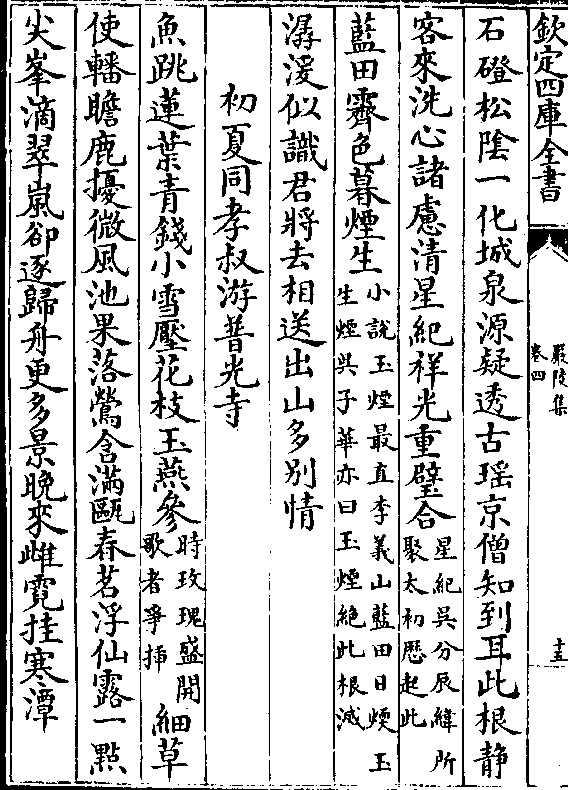 欽定四庫全書
嚴陵集
卷四
十五
石磴松陰一化城泉源疑透古瑶京僧知到耳此根静
客來洗心諸慮清星紀祥光重璧合星紀吳分辰緯所
聚太初厯起此
藍田霽色暮煙生小說玉煙最直李義山藍田日煗玉
生煙吳子華亦曰玉煙絶此根滅
潺湲似識君將去相送出山多别情
初夏同孝叔游普光寺
魚跳蓮葉青錢小雪壓花枝玉燕參時玫瑰盛開
歌者爭揷細草
使轓瞻鹿擾微風池果落鶯含滿甌春茗浮仙露一點
尖峯滴翠嵐卻逐歸舟更多景晚來雌霓挂寒潭